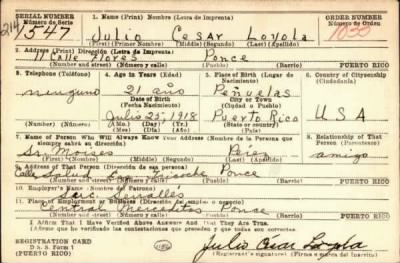 SERIAL NUMBER 1. Name (Print) Nombre (Letra de Imprenta) ORDER NUMBER
Número de Serie Número de Orden
1547 Julio Cesar Loyola
(First) (Primer Nombre) (Middle) (Segundo) (Last) (Apellido)
2. Address (Print) Dirección (Letra de Imprenta)
11 Calle Flores Ponce
(Number and street) (Número y calle) Pueblo PUERTO RICO
3. Telephone (Teléfono) 4. Age in Years (Edad) 5. Place of Birth (Lugar de Nacimiento) 6. Country of Citizenship (Ciudadanía)
ninguno 21 año Peñuelas
Date of Birth City or Town
(Fecha Nacimiento) (Ciudad o Pueblo)
Julio 25, 1918 Puerto Rico USA
(Mo.) (Day) (Yr.) State or country
(Mes) (Día) (Año) (Estado o país)
7. Name of Person Who Will Always Know Your Address (Nombre de la Persona que siempre sabrá su dirección) 8. Relationship of That Person (Parentesco)
Sr. Moises Pérez amigo
(First) (Middle) (Segundo) (Last) (Apellido)
9. Address of That Person (Dirección de esa persona)
Calle Salud Ponce
(Number and street) (Número y calle) Pueblo PUERTO RICO
10. Employer's Name (Nombre del Patrono)
Suc. Serrallés
11. Place of Employment or Business (Dirección del empleo)
Central Mercedita Ponce
(Number and street) (Número y calle) Pueblo PUERTO RICO
I Affirm That I Have Verified Above Answers and That They Are True.
(Afirmo que he verificado las contestaciones que preceden y que son ciertas.)
REGISTRATION CARD
D. S. S. Form 1
(PUERTO RICO) Julio César Loyola
(Registrant's signature) (Firma o marca del Inscrito)